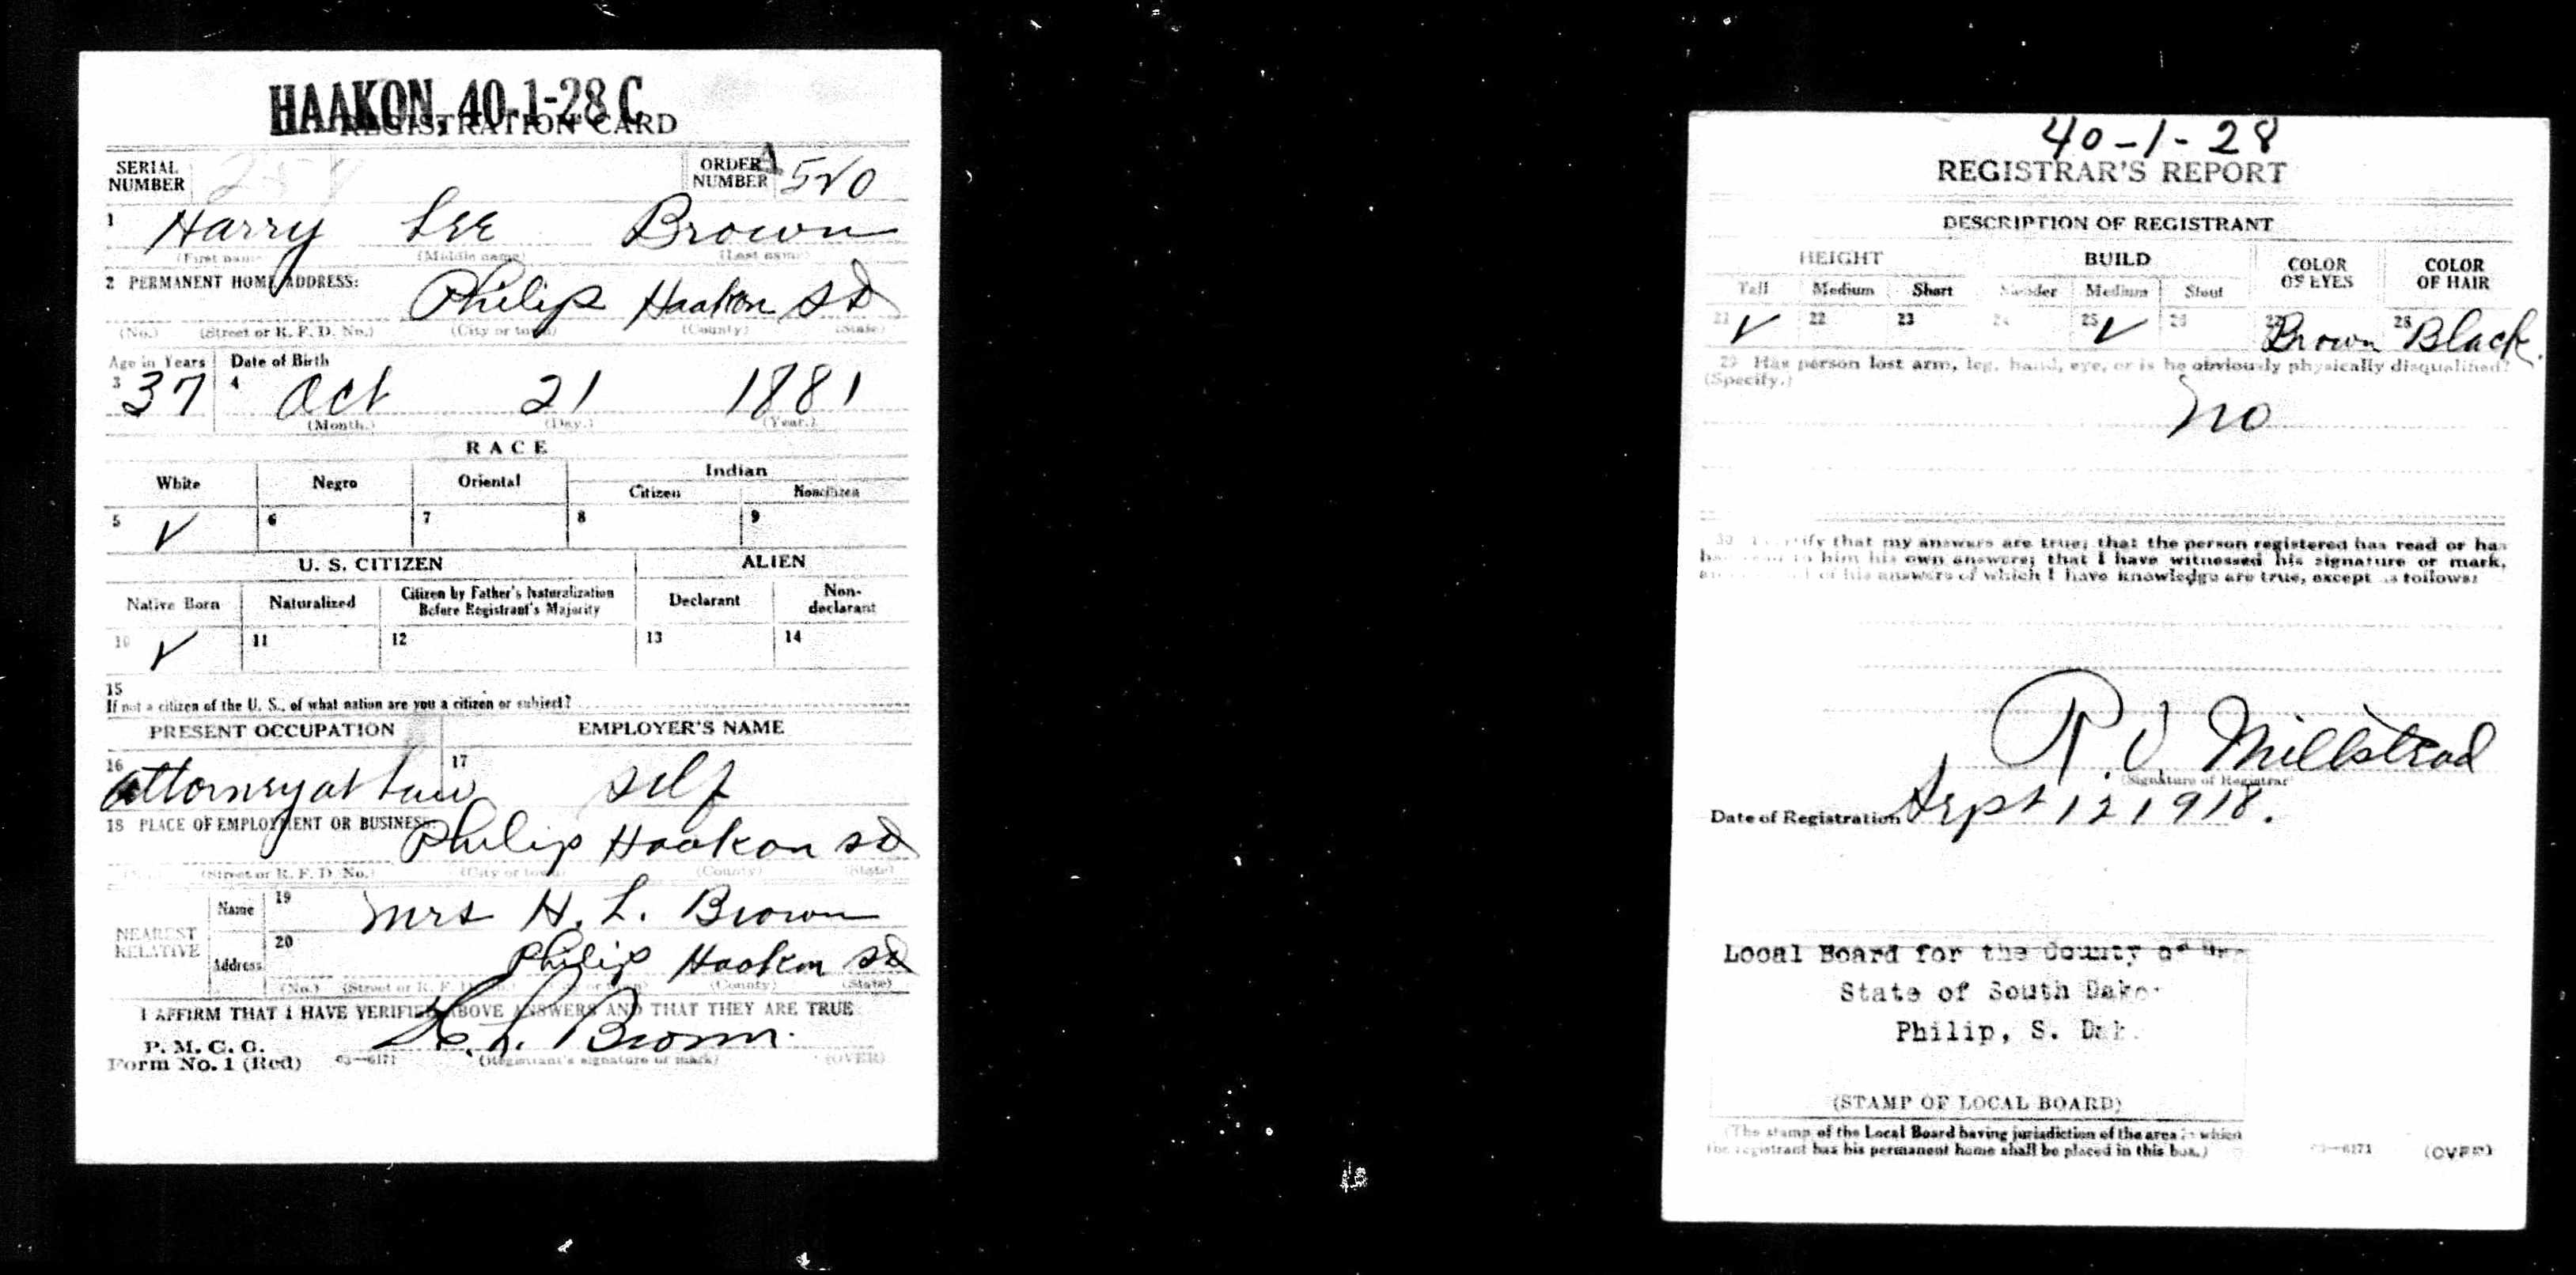 HAAKON, 40-1-28 C
REGISTRATION CARD
SERIAL NUMBER ORDER NUMBER A 520
1 Harry Lee Brown
(First name) (Middle name) (Last name)
2 PERMANENT HOME ADDRESS:
Philip Haakon SD
(No.) (Street or R. F. D. No.) (City or town) (County) (State)
Age in Years Date of Birth
3 37 4 Oct 21 1881
(Month.) (Day.) (Year.)
RACE
White Negro Oriental Indian
Citizen Noncitizen
5 ✓ 6 7 8 9
U. S. CITIZEN ALIEN
Native Born Naturalized Citizen by Father's Naturalization Before Registrant's Majority Declarant Non-declarant
10 ✓ 11 12 13 14
15
If not a citizen of the U. S., of what nation are you a citizen or subject?
PRESENT OCCUPATION EMPLOYER'S NAME
16 attorney at Law 17 self
18 PLACE OF EMPLOYMENT OR BUSINESS:
Philip Haakon SD
(Street or R. F. D. No.) (City or town) (County) (State)
NEAREST RELATIVE
Name 19 Mrs H. L. Brown
Address 20 Philip Haakon SD
(No.) (Street or R. F. D. No.) (City or town) (County) (State)
I AFFIRM THAT I HAVE VERIFIED ABOVE ANSWERS AND THAT THEY ARE TRUE
P. M. G. O.
Form No. 1 (Red) 03—6171 H. L. Brown
(Registrant's signature or mark) (OVER)
40-1-28
REGISTRAR'S REPORT
DESCRIPTION OF REGISTRANT
HEIGHT BUILD COLOR OF EYES COLOR OF HAIR
Tall Medium Short Slender Medium Stout
21 ✓ 22 23 24 25 ✓ 26 27 Brown 28 Black.
29 Has person lost arm, leg, hand, eye, or is he obviously physically disqualified?
(Specify.)
no
30 I certify that my answers are true; that the person registered has read or has
had read to him his own answers; that I have witnessed his signature or mark,
and that all of his answers of which I have knowledge are true, except as follows:
(Signature of Registrar)
Date of Registration Sept 12 1918.
Local Board for the County of
State of South Dako
Philip, S. Dak.
(STAMP OF LOCAL BOARD)
(The stamp of the Local Board having jurisdiction of the area in which
the registrant has his permanent home shall be placed in this box.)
03—6171 (OVER)